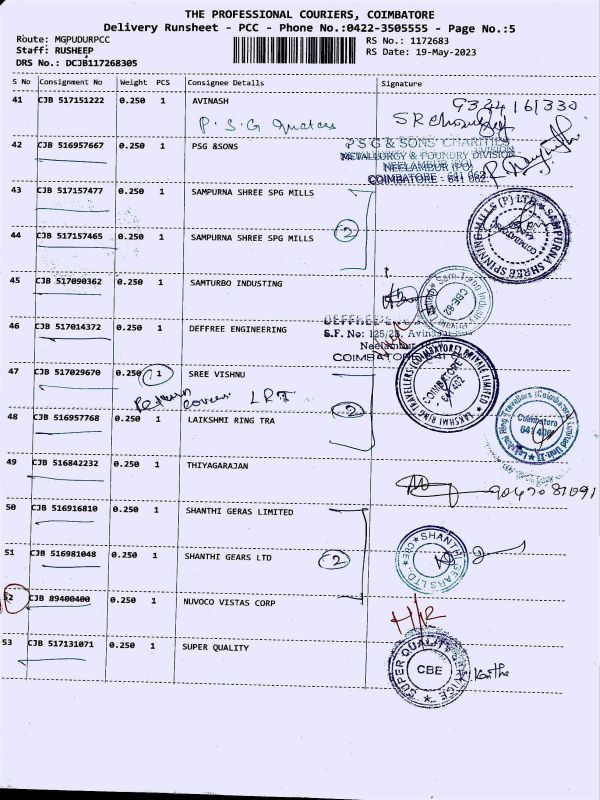 THE PROFESSIONAL COURIERS, COIMBATORE
Delivery Runsheet - PCC - Phone No.:0422-3505555 - Page No.:5
Route: MGPUDURPCC
RS No.: 1172683
Staff: RUSHEEP
RS Date: 19-May-2023
DRS No.: DCJB117268305
S No Consignment No Weight PCS Consignee Details Signature
41 CJB 517151222 0.250 1 AVINASH
9344161330
P.S.G Quaters
42 CJB 516957667 0.250 1 PSG &SONS
P S G & SONS' CHARITIES
METALLURGY & FOUNDRY DIVISION
NEELAMBUR (PO)
COIMBATORE - 641 062
43 CJB 517157477 0.250 1 SAMPURNA SHREE SPG MILLS
2
SAMPURNA SHREE SPINNING MILLS (P) LTD
COIMBATORE
44 CJB 517157465 0.250 1 SAMPURNA SHREE SPG MILLS
45 CJB 517090362 0.250 1 SAMTURBO INDUSTING
CBE-62
46 CJB 517014372 0.250 1 DEFFREE ENGINEERING
S.F. No: 125/2B, Avinashi
Neelambur
COIMBATORE
47 CJB 517029670 0.250 1 SREE VISHNU
Return covers LRT
2
LAKSHMI RING TRAVELLERS (COIMBATORE) PRIVATE LIMITED
COIMBATORE
641 402
48 CJB 516957768 0.250 1 LAIKSHMI RING TRA
Lakshmi Ring Travellers (Coimbatore) Limited Unit
Coimbatore
641 402
49 CJB 516842232 0.250 1 THIYAGARAJAN
50 CJB 516916810 0.250 1 SHANTHI GERAS LIMITED
2
51 CJB 516981048 0.250 1 SHANTHI GEARS LTD
SHANTHI GEARS LTD.,
CBE
52 CJB 89400400 0.250 1 NUVOCO VISTAS CORP
H/R
53 CJB 517131071 0.250 1 SUPER QUALITY
SUPER QUALITY SERVICE
CBE